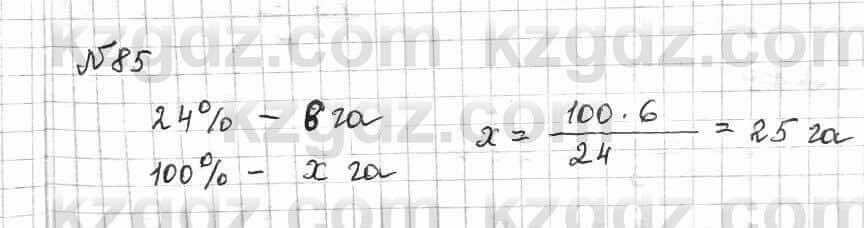 kzgdz.com kzgdz.com
№85
24% - 6 га
100% - x га
x = 100 · 6 / 24 = 25 га
kzgdz.com kzgdz.com
kzgdz.com kzgdz.com